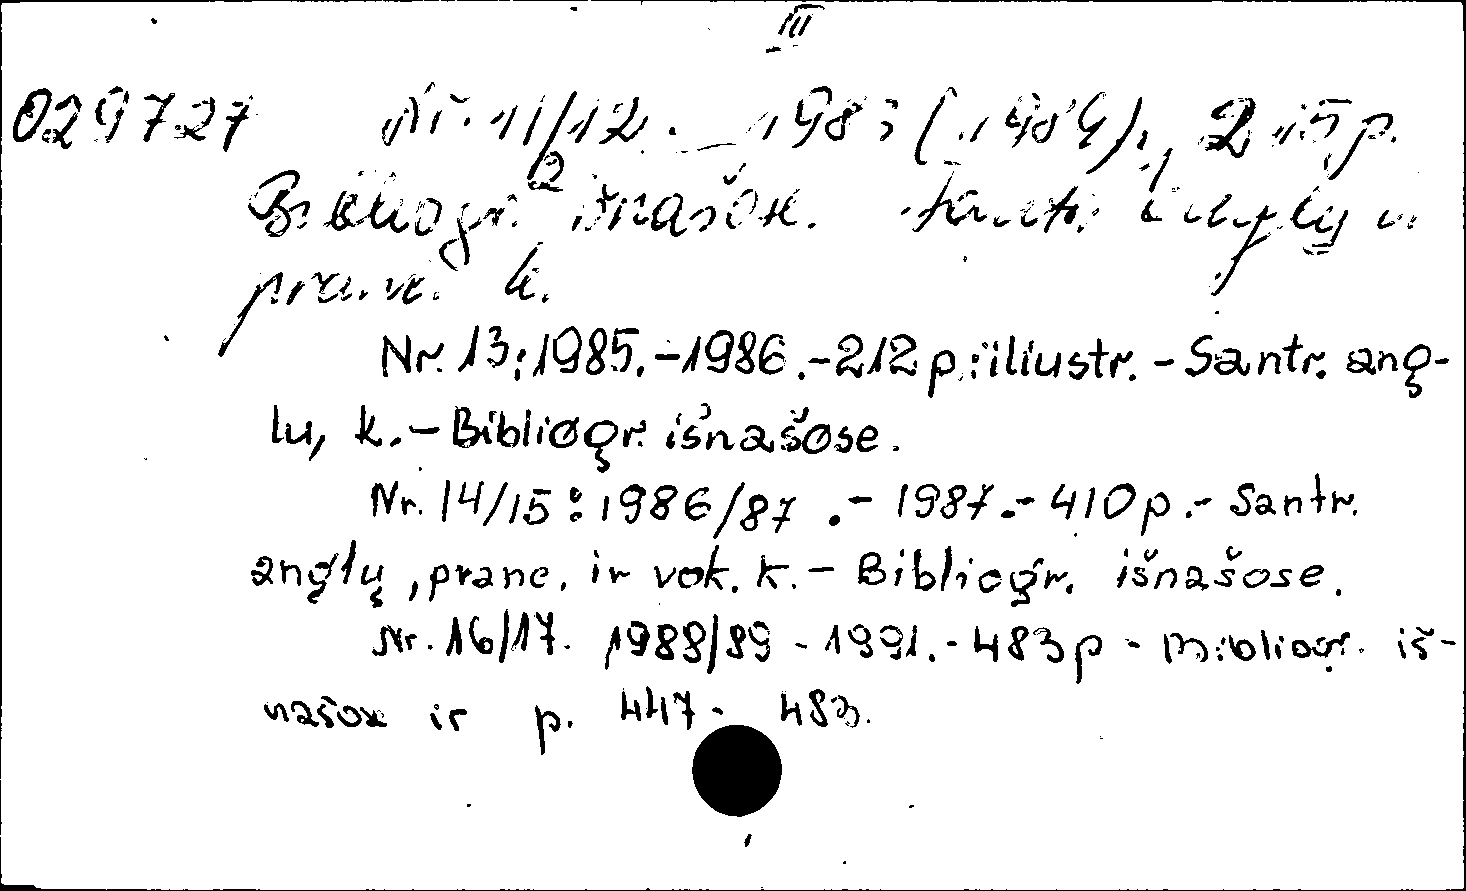 III
029727 Nr. 11/12. _ 1983 (1984)., 215 p.
Bibliogr. išnašose. Santr. anglų ir
pranc. k.
Nr. 13:1985.-1986.-212 p.:iliustr. - Santr. ang-
lų k. - Bibliogr. išnašose.
Nr. 14/15: 1986/87 .- 1987.- 410 p.- Santr.
anglų, pranc. ir vok. k. - Bibliogr. išnašose.
Nr. 16/17. 1988/89 - 1991.- 483 p - Bibliogr. iš-
našose ir p. 447- 483.